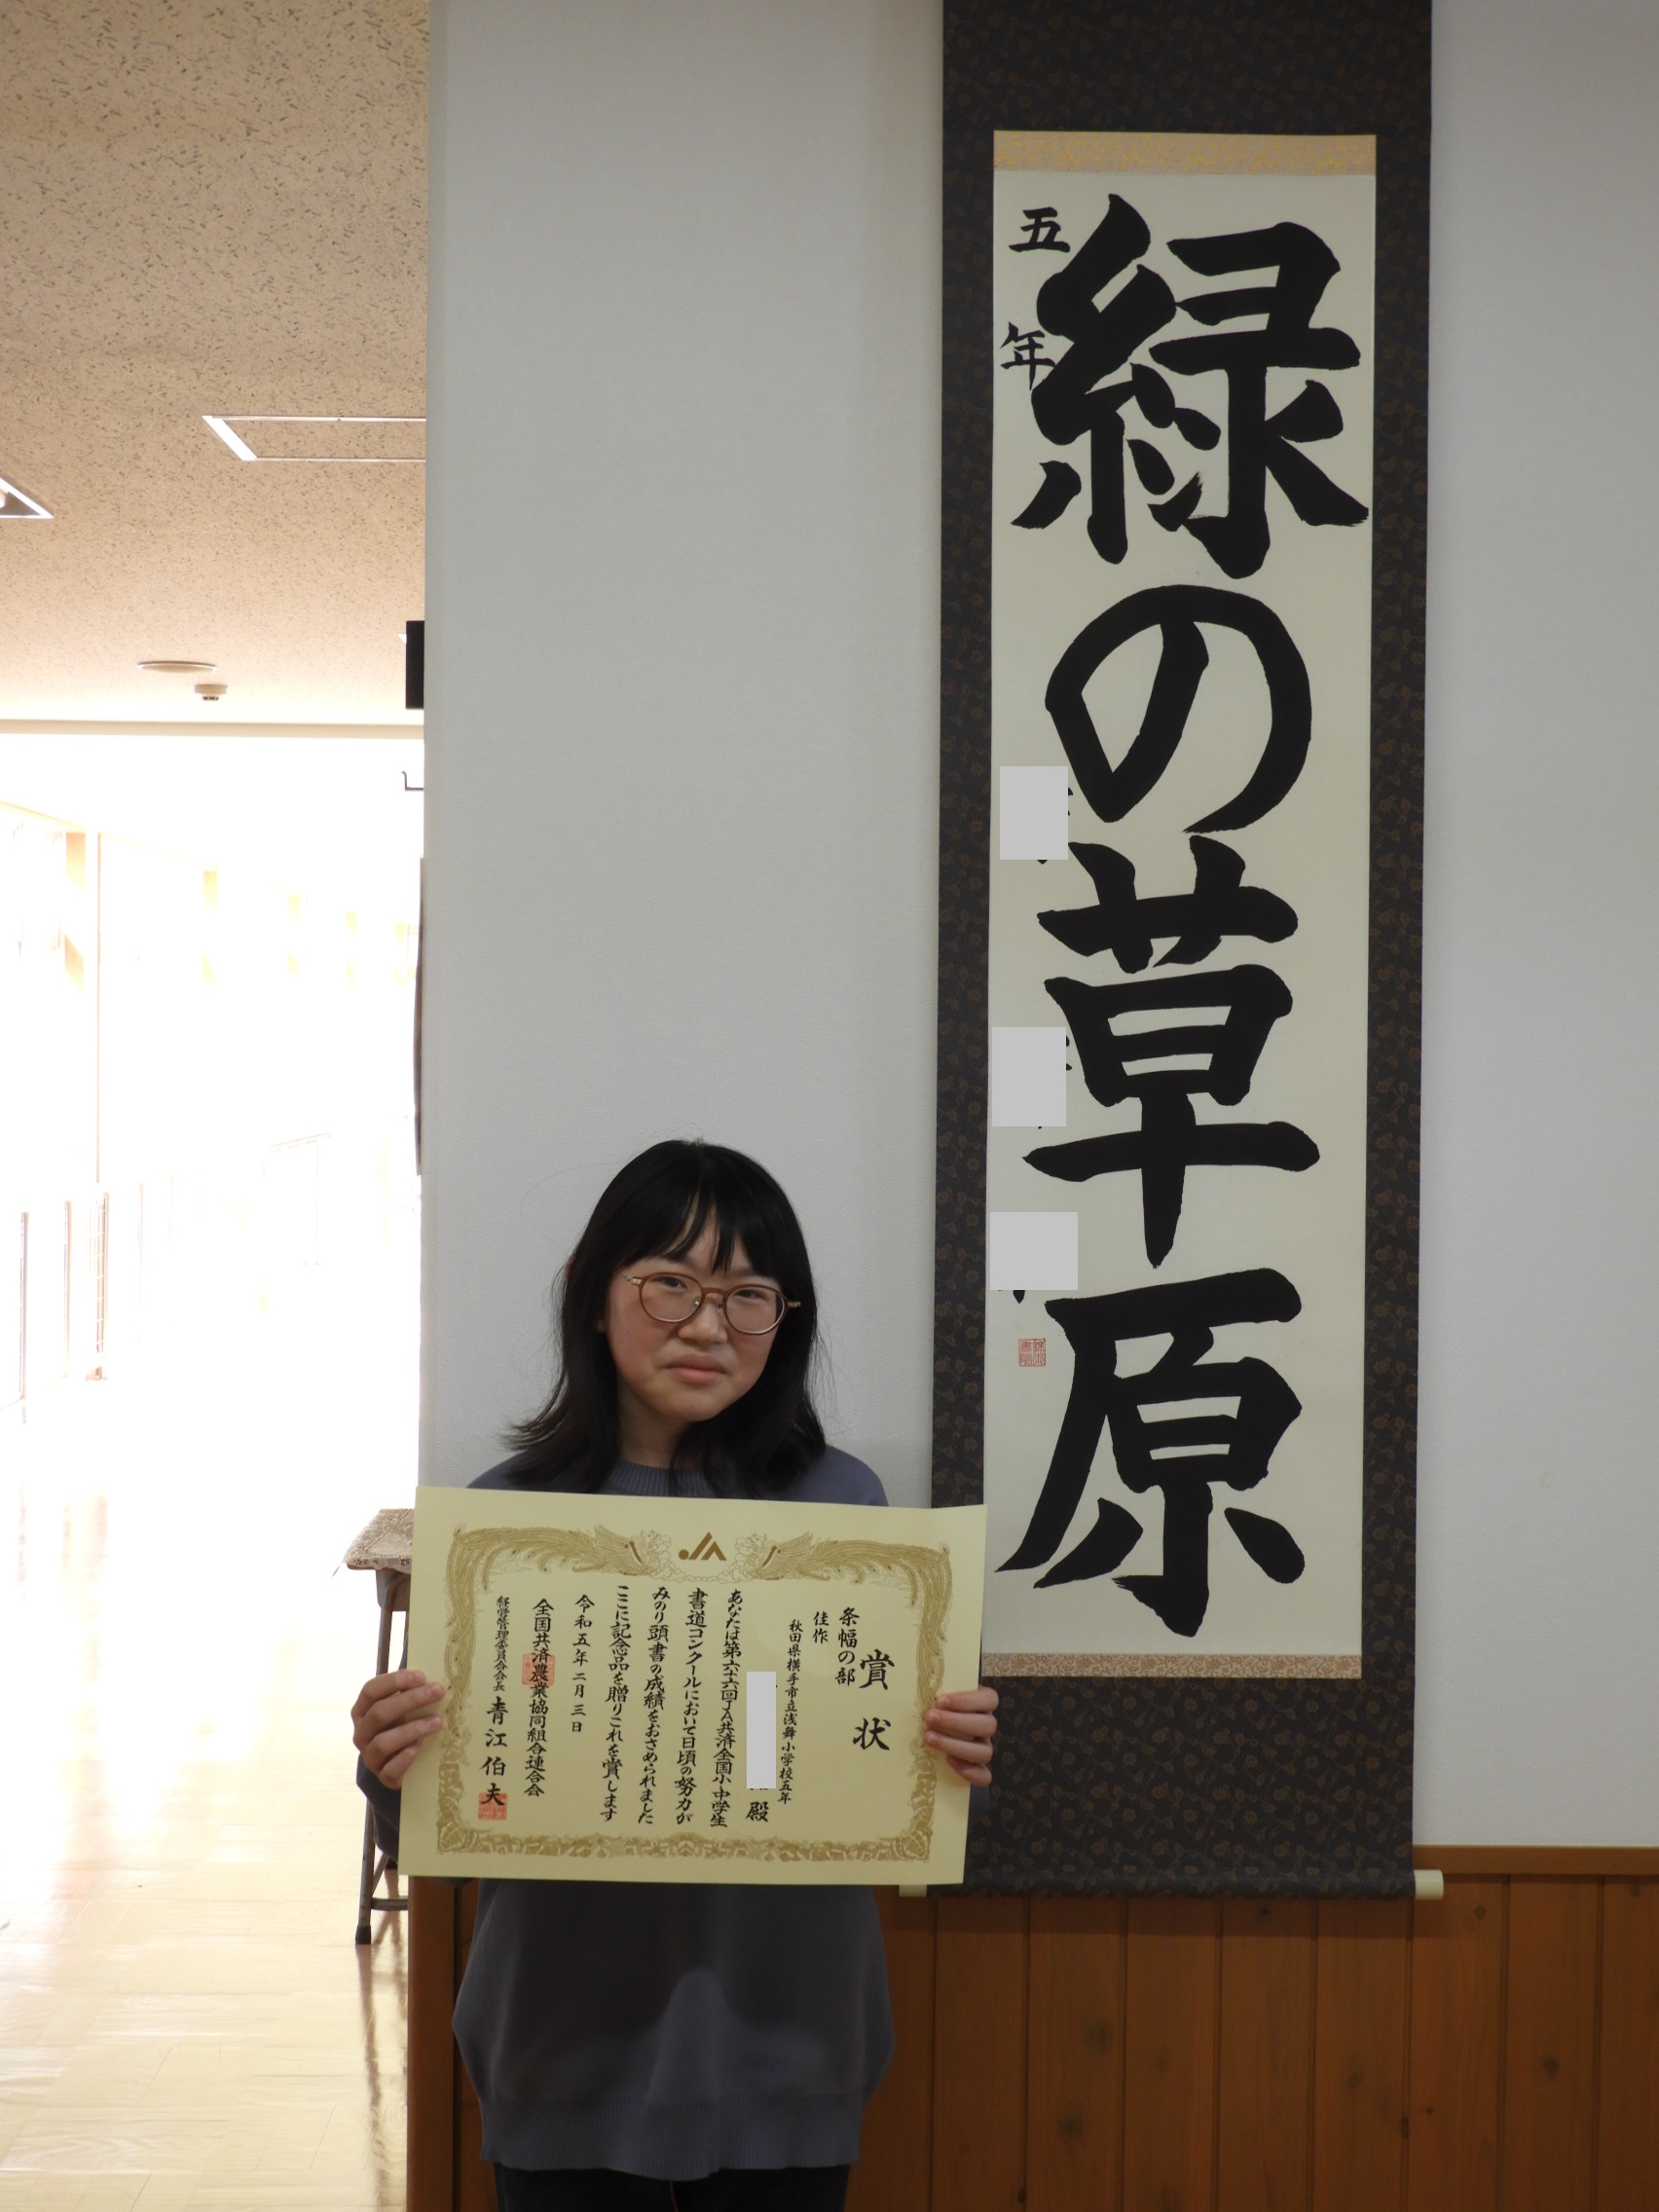 緑の草原
五年
賞状
条幅の部
佳作
秋田県横手市立浅舞小学校五年
殿
あなたは第六十六回JA共済全国小・中学生
書道コンクールにおいて日頃の努力が
みのり頭書の成績をおさめられました
ここに記念品を贈りこれを賞します
令和五年二月三日
全国共済農業協同組合連合会
経営管理委員会会長 青江伯夫